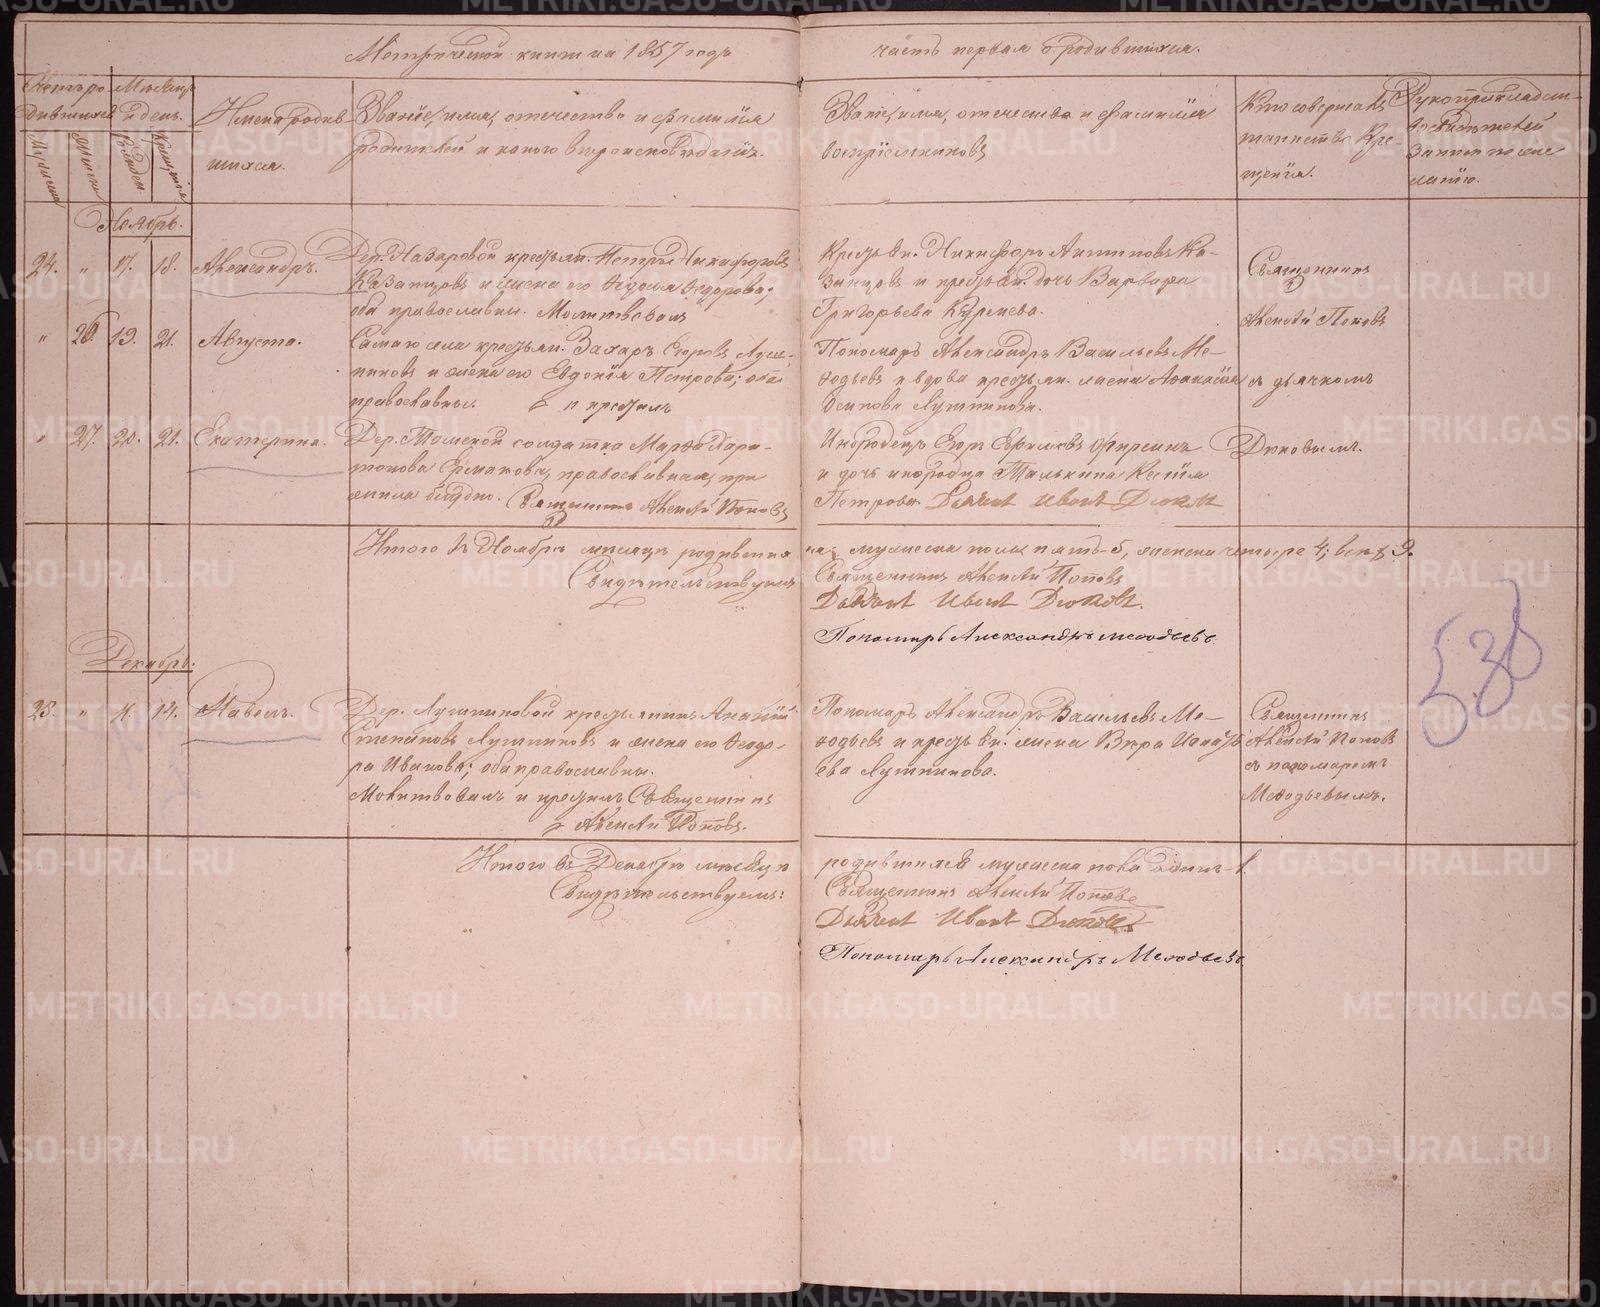 Метрической книги на 1857 годъ
часть первая о родившихся.
Мѣсяцъ
и день.
Имена родив
шихся.
Званіе, имя, отечество и фамилія
родителей и какого вѣроисповѣданія.
Званіе, имя, отечество и фамилія
воспріемниковъ
Кто совершалъ
таинство Кре
щенія.
Рукоприкладст
свидѣтелей
записи по же
ланію.
Рожден.
Крещенія
Ноябрь.
24. " 17. 18. Александръ.
Дер. Назаровой крестьян. Петръ Никифоровъ
Казанцовъ и жена его Ѳедосья Ѳедорова;
оба православны. Молитвовалъ
Крестьян. Никифоръ Антиповъ Ка-
занцовъ и крестьян. дочь Варвара
Григорьева
Священникъ
Алексѣй Поповъ
" 26. 19. 21. Августа.
Самаго села крестьян. Захаръ Егоровъ Луш-
никовъ и жена его Евдокія Петрова; оба
православны. и крестилъ
Пономарь Александръ Васильевъ Ме-
ѳодьевъ и вдова крестьян. жена
Осипова Лушникова.
съ дьячкомъ
" 27. 20. 21. Екатерина.
Дер. солдатка Марѳа Хари-
тонова Ермакова, православная, при
жила блудно. Священникъ Алексѣй Поповъ
Инородецъ Егор
и дочь инородца
Петрова. Дьячокъ Иванъ Дюковъ
Дюковымъ.
Итого въ Ноябрѣ мѣсяцѣ родивши
хся мужеска пола пять-5, женска четыре 4; всѣхъ 9.
Свидѣтельствуемъ
Священникъ Алексѣй Поповъ
Дьячокъ Иванъ Дюковъ.
Пономарь Александръ Меѳодьевъ.
538
Декабрь.
25. " 11. 14. Павелъ.
Дер. Лушниковой крестьянинъ Ананій
Степановъ Лушниковъ и жена его Ѳеодо-
ра Иванова; оба православны.
Молитвовалъ и крестилъ Священникъ
Алексѣй Поповъ.
Пономарь Александръ Васильевъ Ме-
ѳодьевъ и крестьян. жена Вѣра
ева Лушникова.
Священникъ
Алексѣй Поповъ
съ пономаремъ
Меѳодьевымъ.
Итого въ Декабрѣ мѣсяцѣ
родившихся мужеска пола одинъ-1.
Свидѣтельствуемъ:
Священникъ Алексѣй Поповъ
Дьячокъ Иванъ Дюковъ
Пономарь Александръ Меѳодьевъ.
METRIKI.GASO-URAL.RU